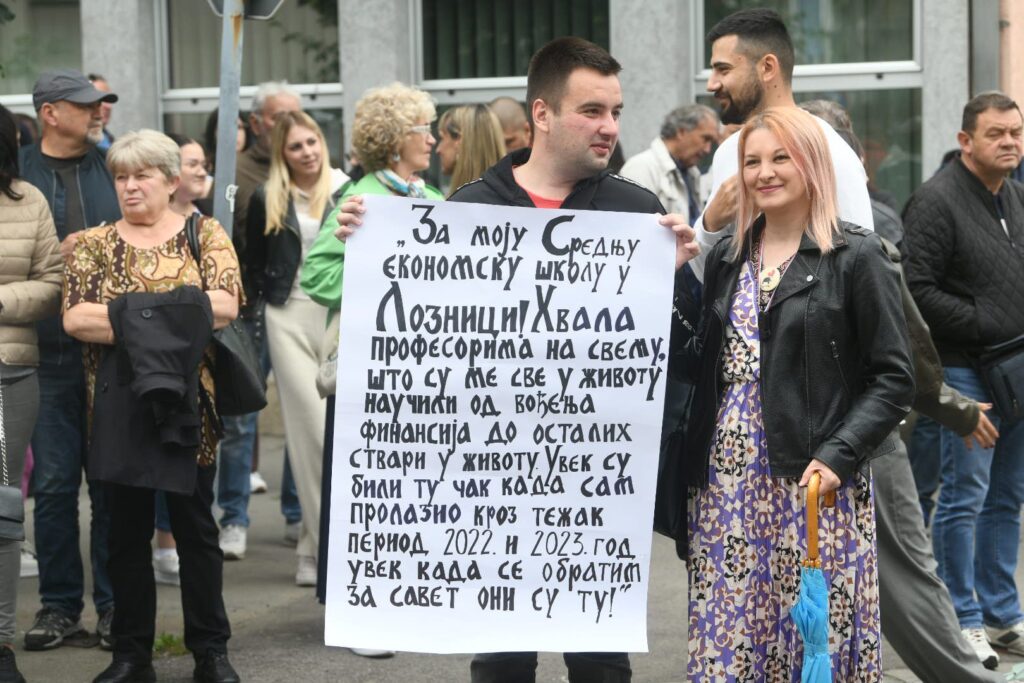 „За моју Средњу
економску школу у
Лозници! Хвала
професорима на свему,
што су ме све у животу
научили од вођења
финансија до осталих
ствари у животу. Увек су
били ту чак када сам
пролазио кроз тежак
период 2022. и 2023. год
увек када се обратим
за савет они су ту!“